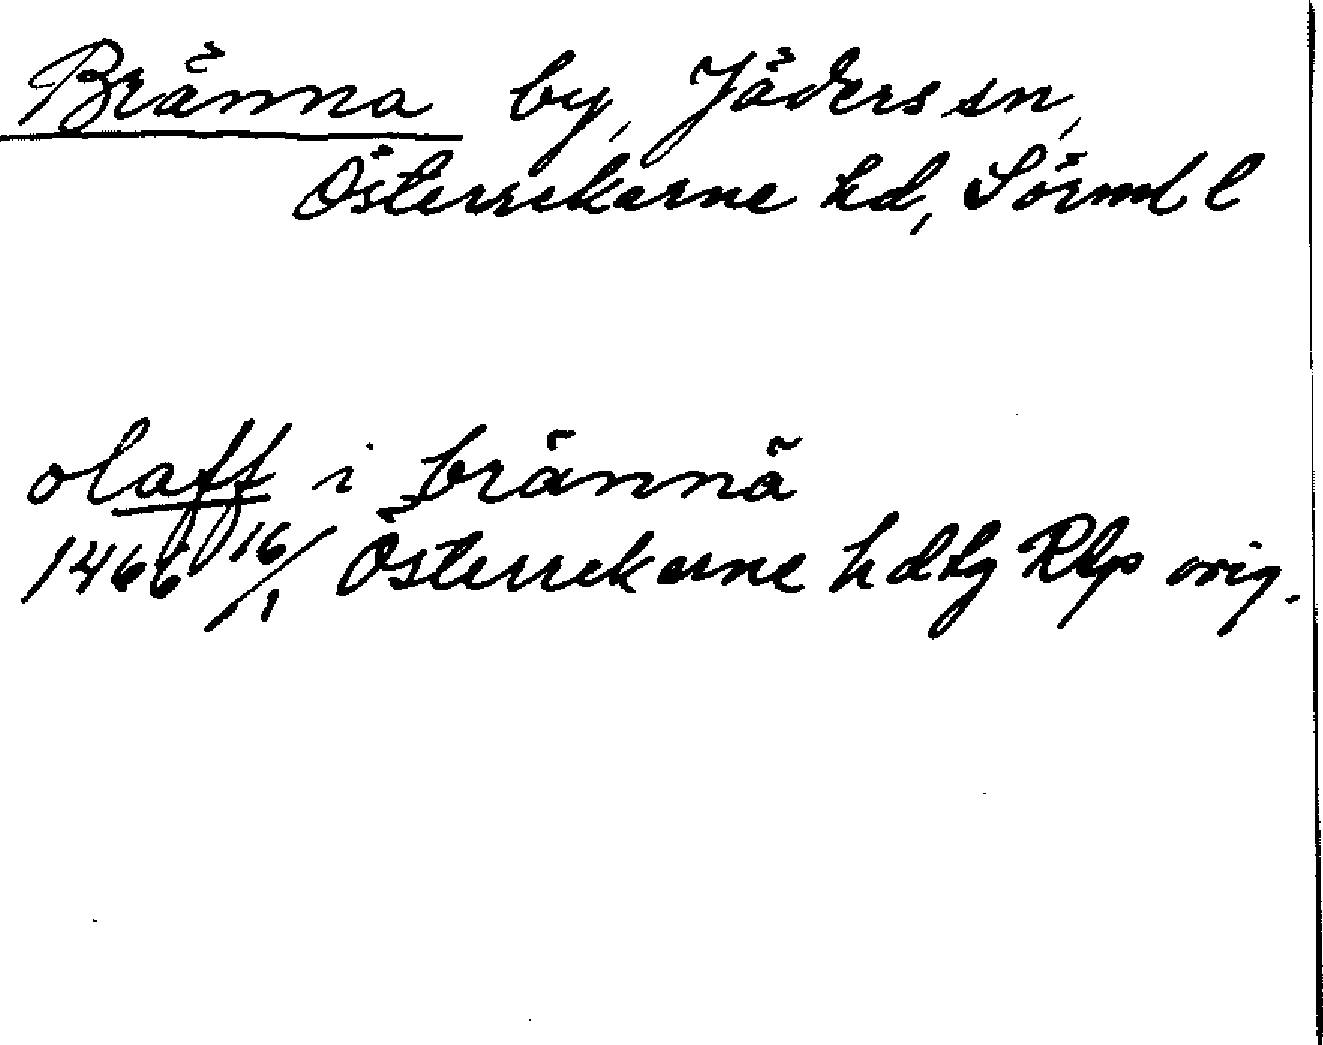 Bränna by, Jäders sn,
Österrekarne hd, Sörml l
olaff i brännä
1466 16/1 Österrekarne hdtg Rkp orig.